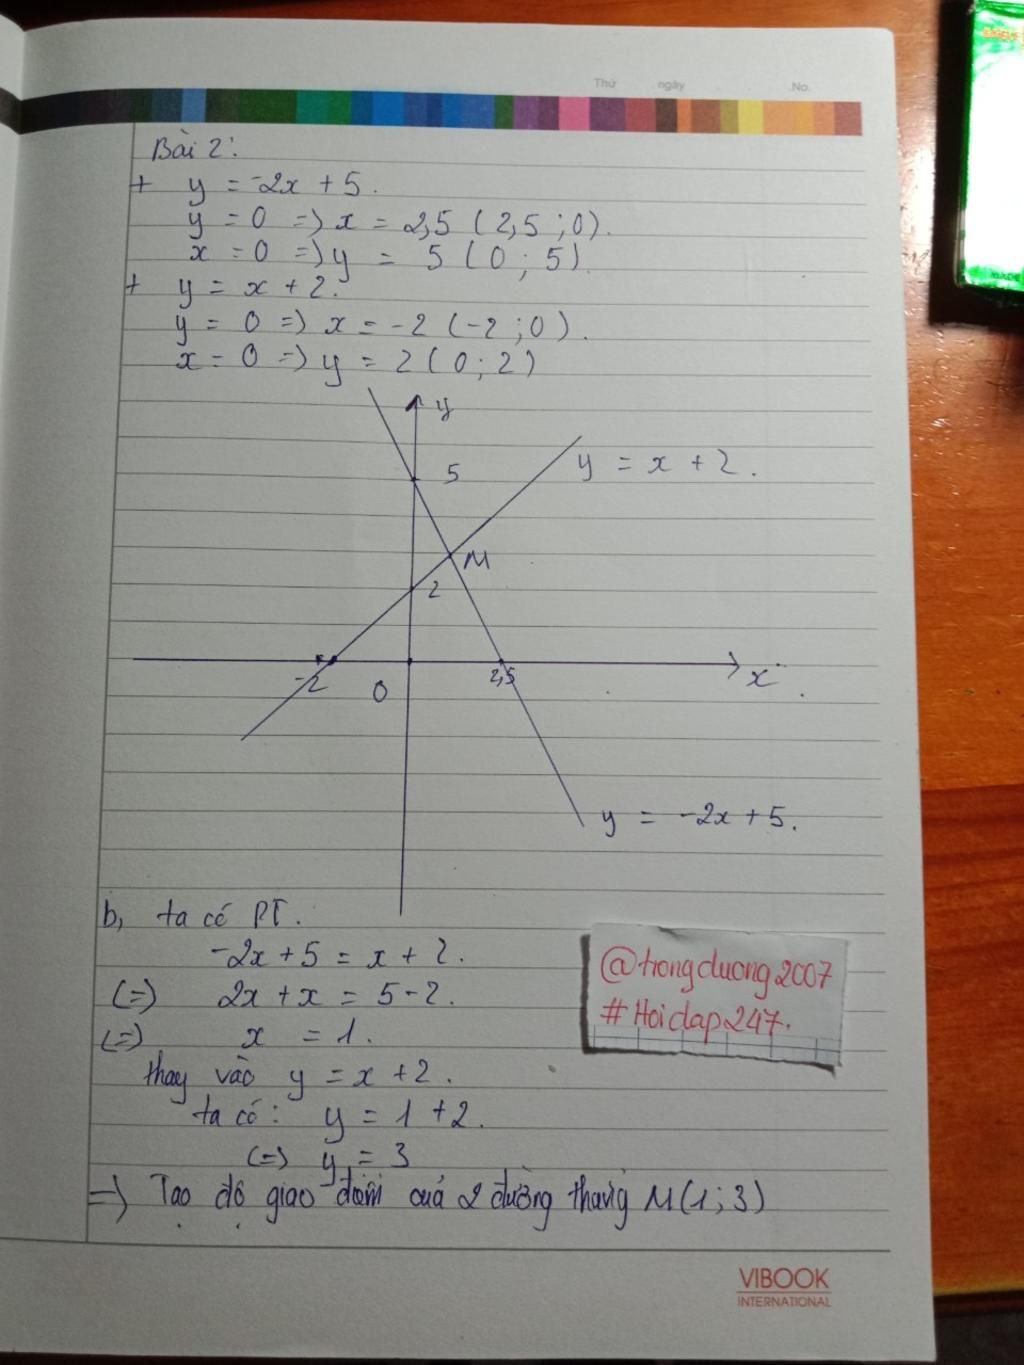 Thứ ngày No.
Bài 2:
+ y = -2x + 5.
y = 0 => x = 2,5 (2,5 ; 0).
x = 0 => y = 5 (0 ; 5).
+ y = x + 2.
y = 0 => x = -2 (-2 ; 0).
x = 0 => y = 2 (0 ; 2)
y
5
y = x + 2.
M
2
-2
0
2,5
x
y = -2x + 5.
b, ta có PT.
-2x + 5 = x + 2.
(=) 2x + x = 5 - 2.
(=) x = 1.
thay vào y = x + 2.
ta có: y = 1 + 2.
(=) y = 3
=) Tọa độ giao điểm của 2 đường thẳng M(1 ; 3)
@trongduong2007
#Hoidap247.
VIBOOK
INTERNATIONAL